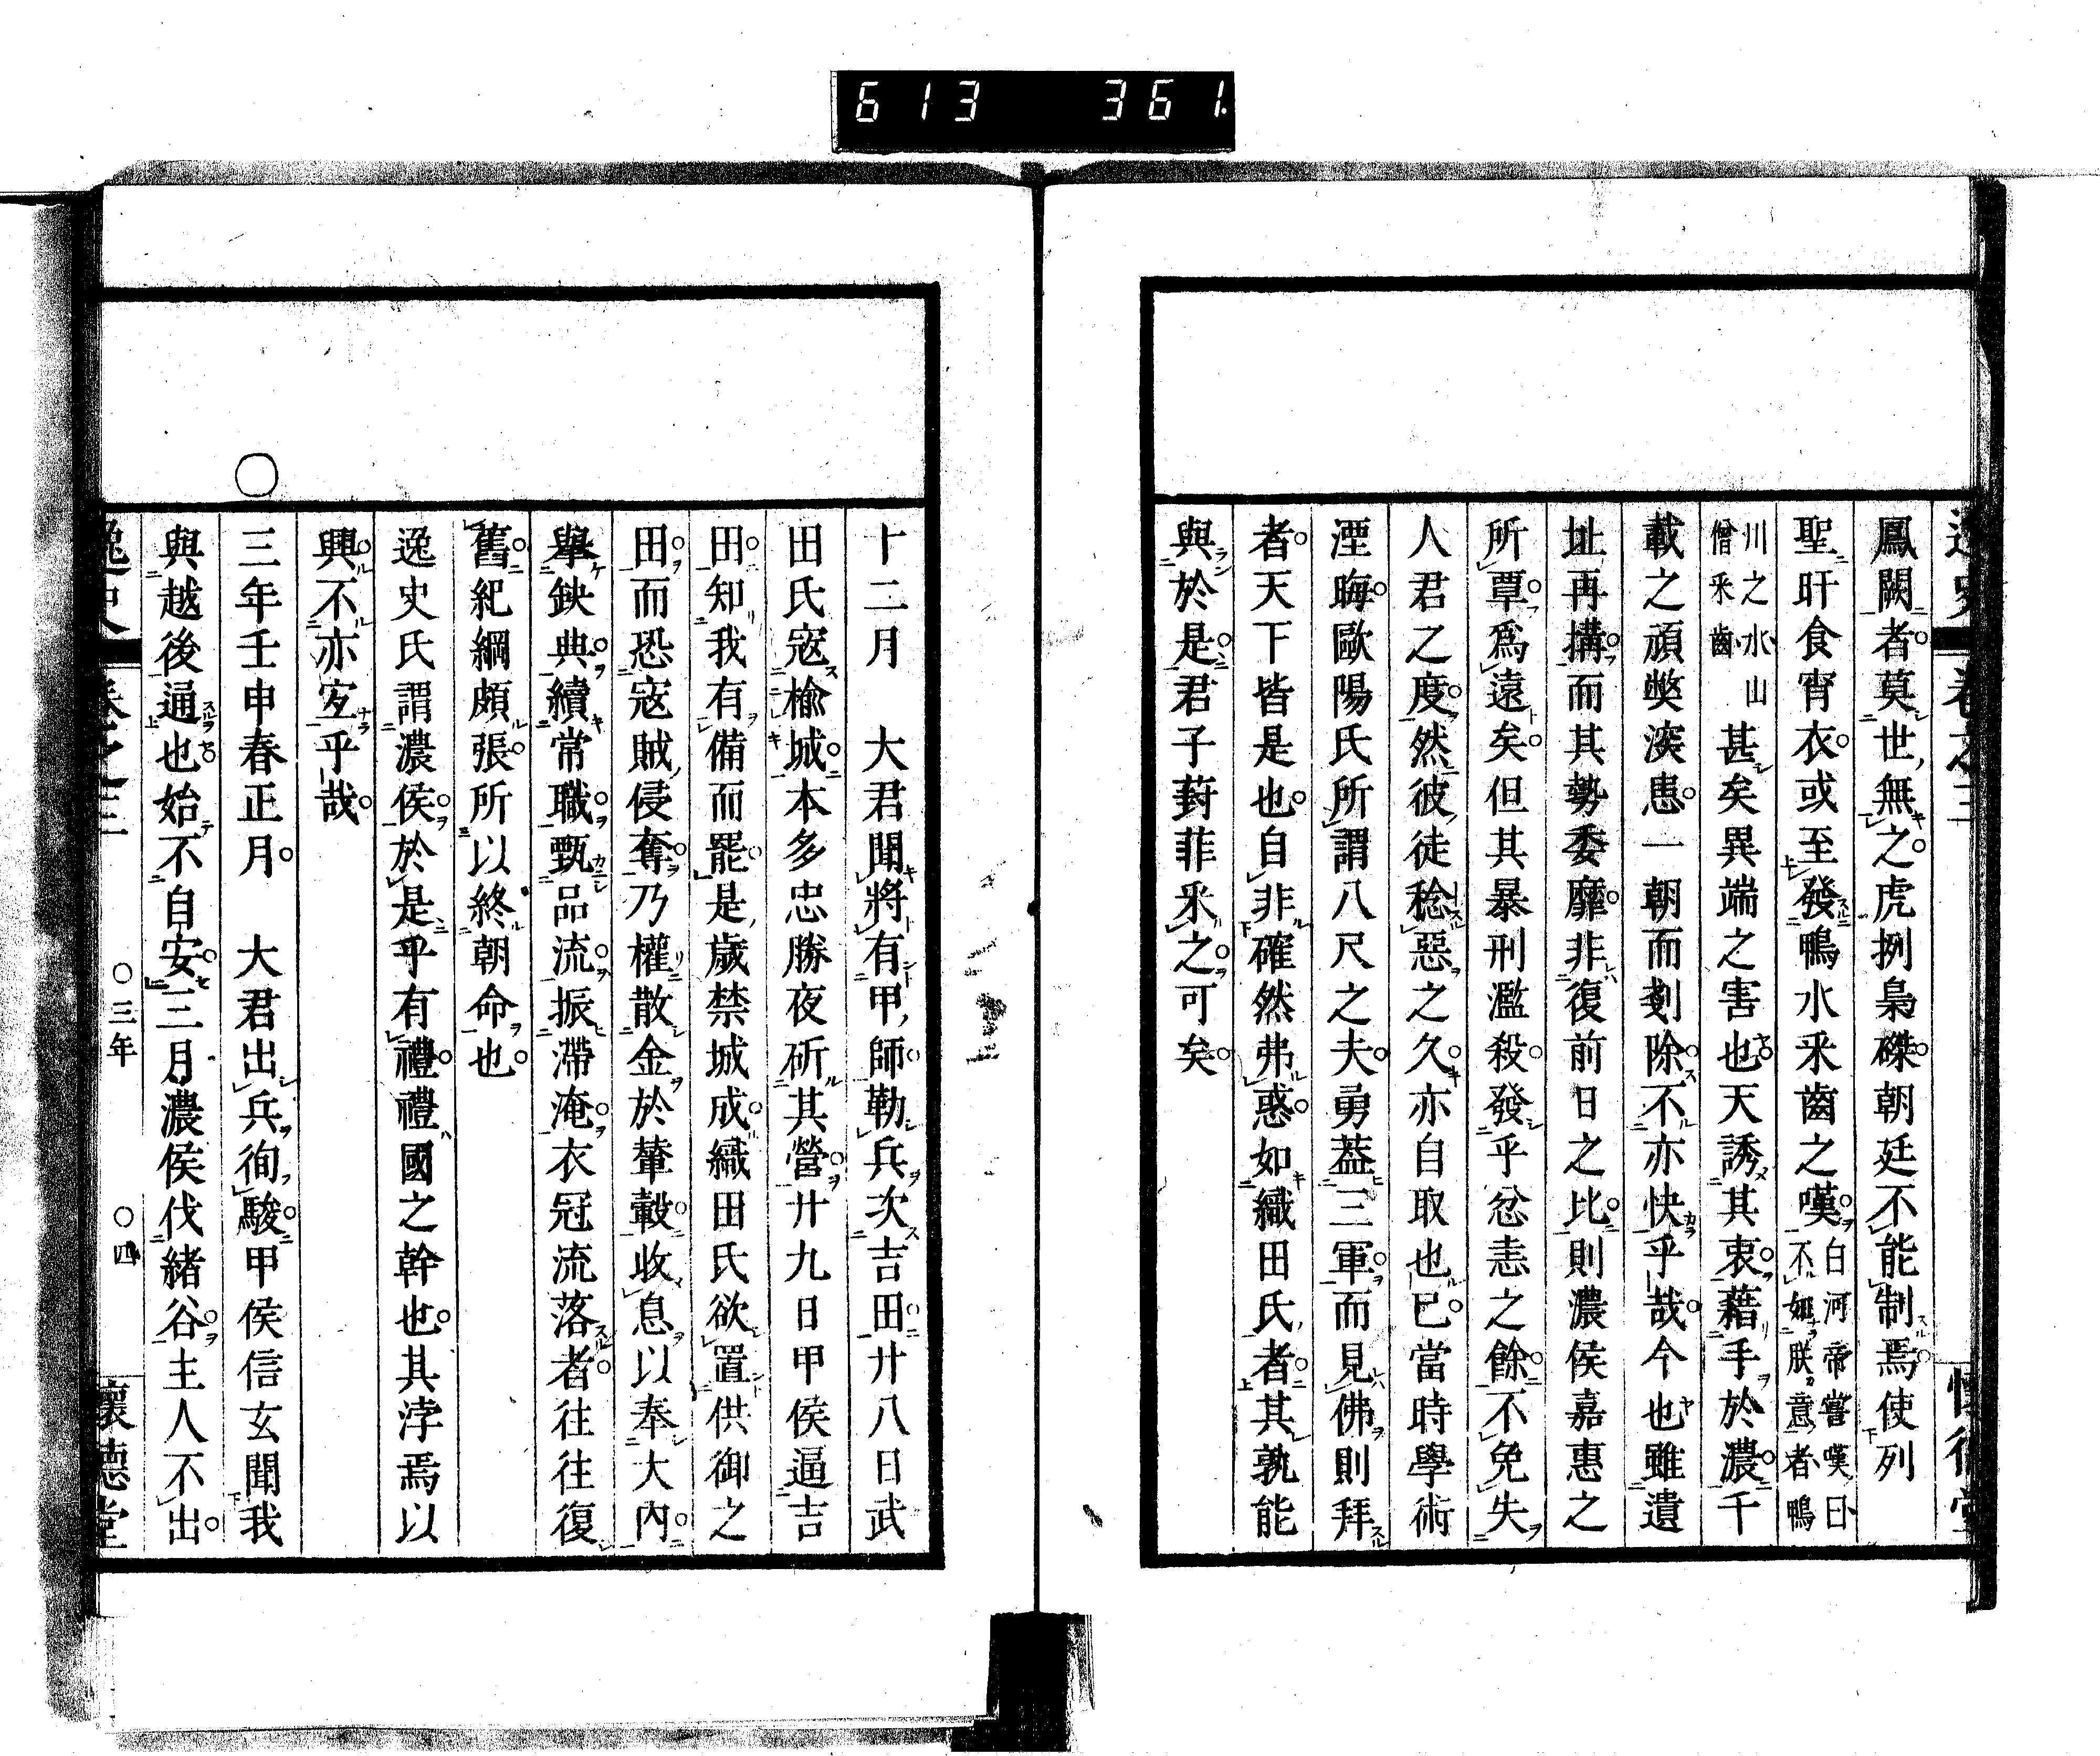 613 361
逸史 卷之三 懷德堂
鳳闕者莫世無之虎捌梟磔朝廷不能制焉使列
聖旰食宵衣或至發鴨水釆齒之嘆白河帝嘗嘆曰不如朕意者鴨
川之水山僧釆齒甚矣異端之害也天誘其衷藉手於濃千
載之頑獘深患一朝而剗除不亦快乎哉今也雖遺
址再搆而其勢委靡非復前日之比則濃侯嘉惠之
所覃爲遠矣但其暴刑濫殺發乎忿恚之餘不免失
人君之度然彼徒稔惡之久亦自取也已當時學術
湮晦歐陽氏所謂八尺之夫勇葢三軍而見佛則拜
者天下皆是也自非確然弗惑如織田氏者其孰能
與於是君子葑菲釆之可矣
十二月 大君聞將有甲師勒兵次吉田廿八日武
田氏寇檢城本多忠勝夜斫其營廿九日甲侯逼吉
田知我有備而罷是歲禁城成織田氏欲置供御之
田而恐寇賊侵奪乃權散金於輦轂收息以奉大內
擧缺典續常職甄品流振滯淹衣冠流落者往往復
舊紀綱頗張所以終朝命也
逸史氏謂濃侯於是乎有禮禮國之幹也其浡焉以
興不亦宐乎哉
○
三年壬申春正月 大君出兵徇駿甲侯信玄聞我
與越後通也始不自安三月濃侯伐緒谷主人不出
逸史 卷之三 ○三年 ○四 懷德堂